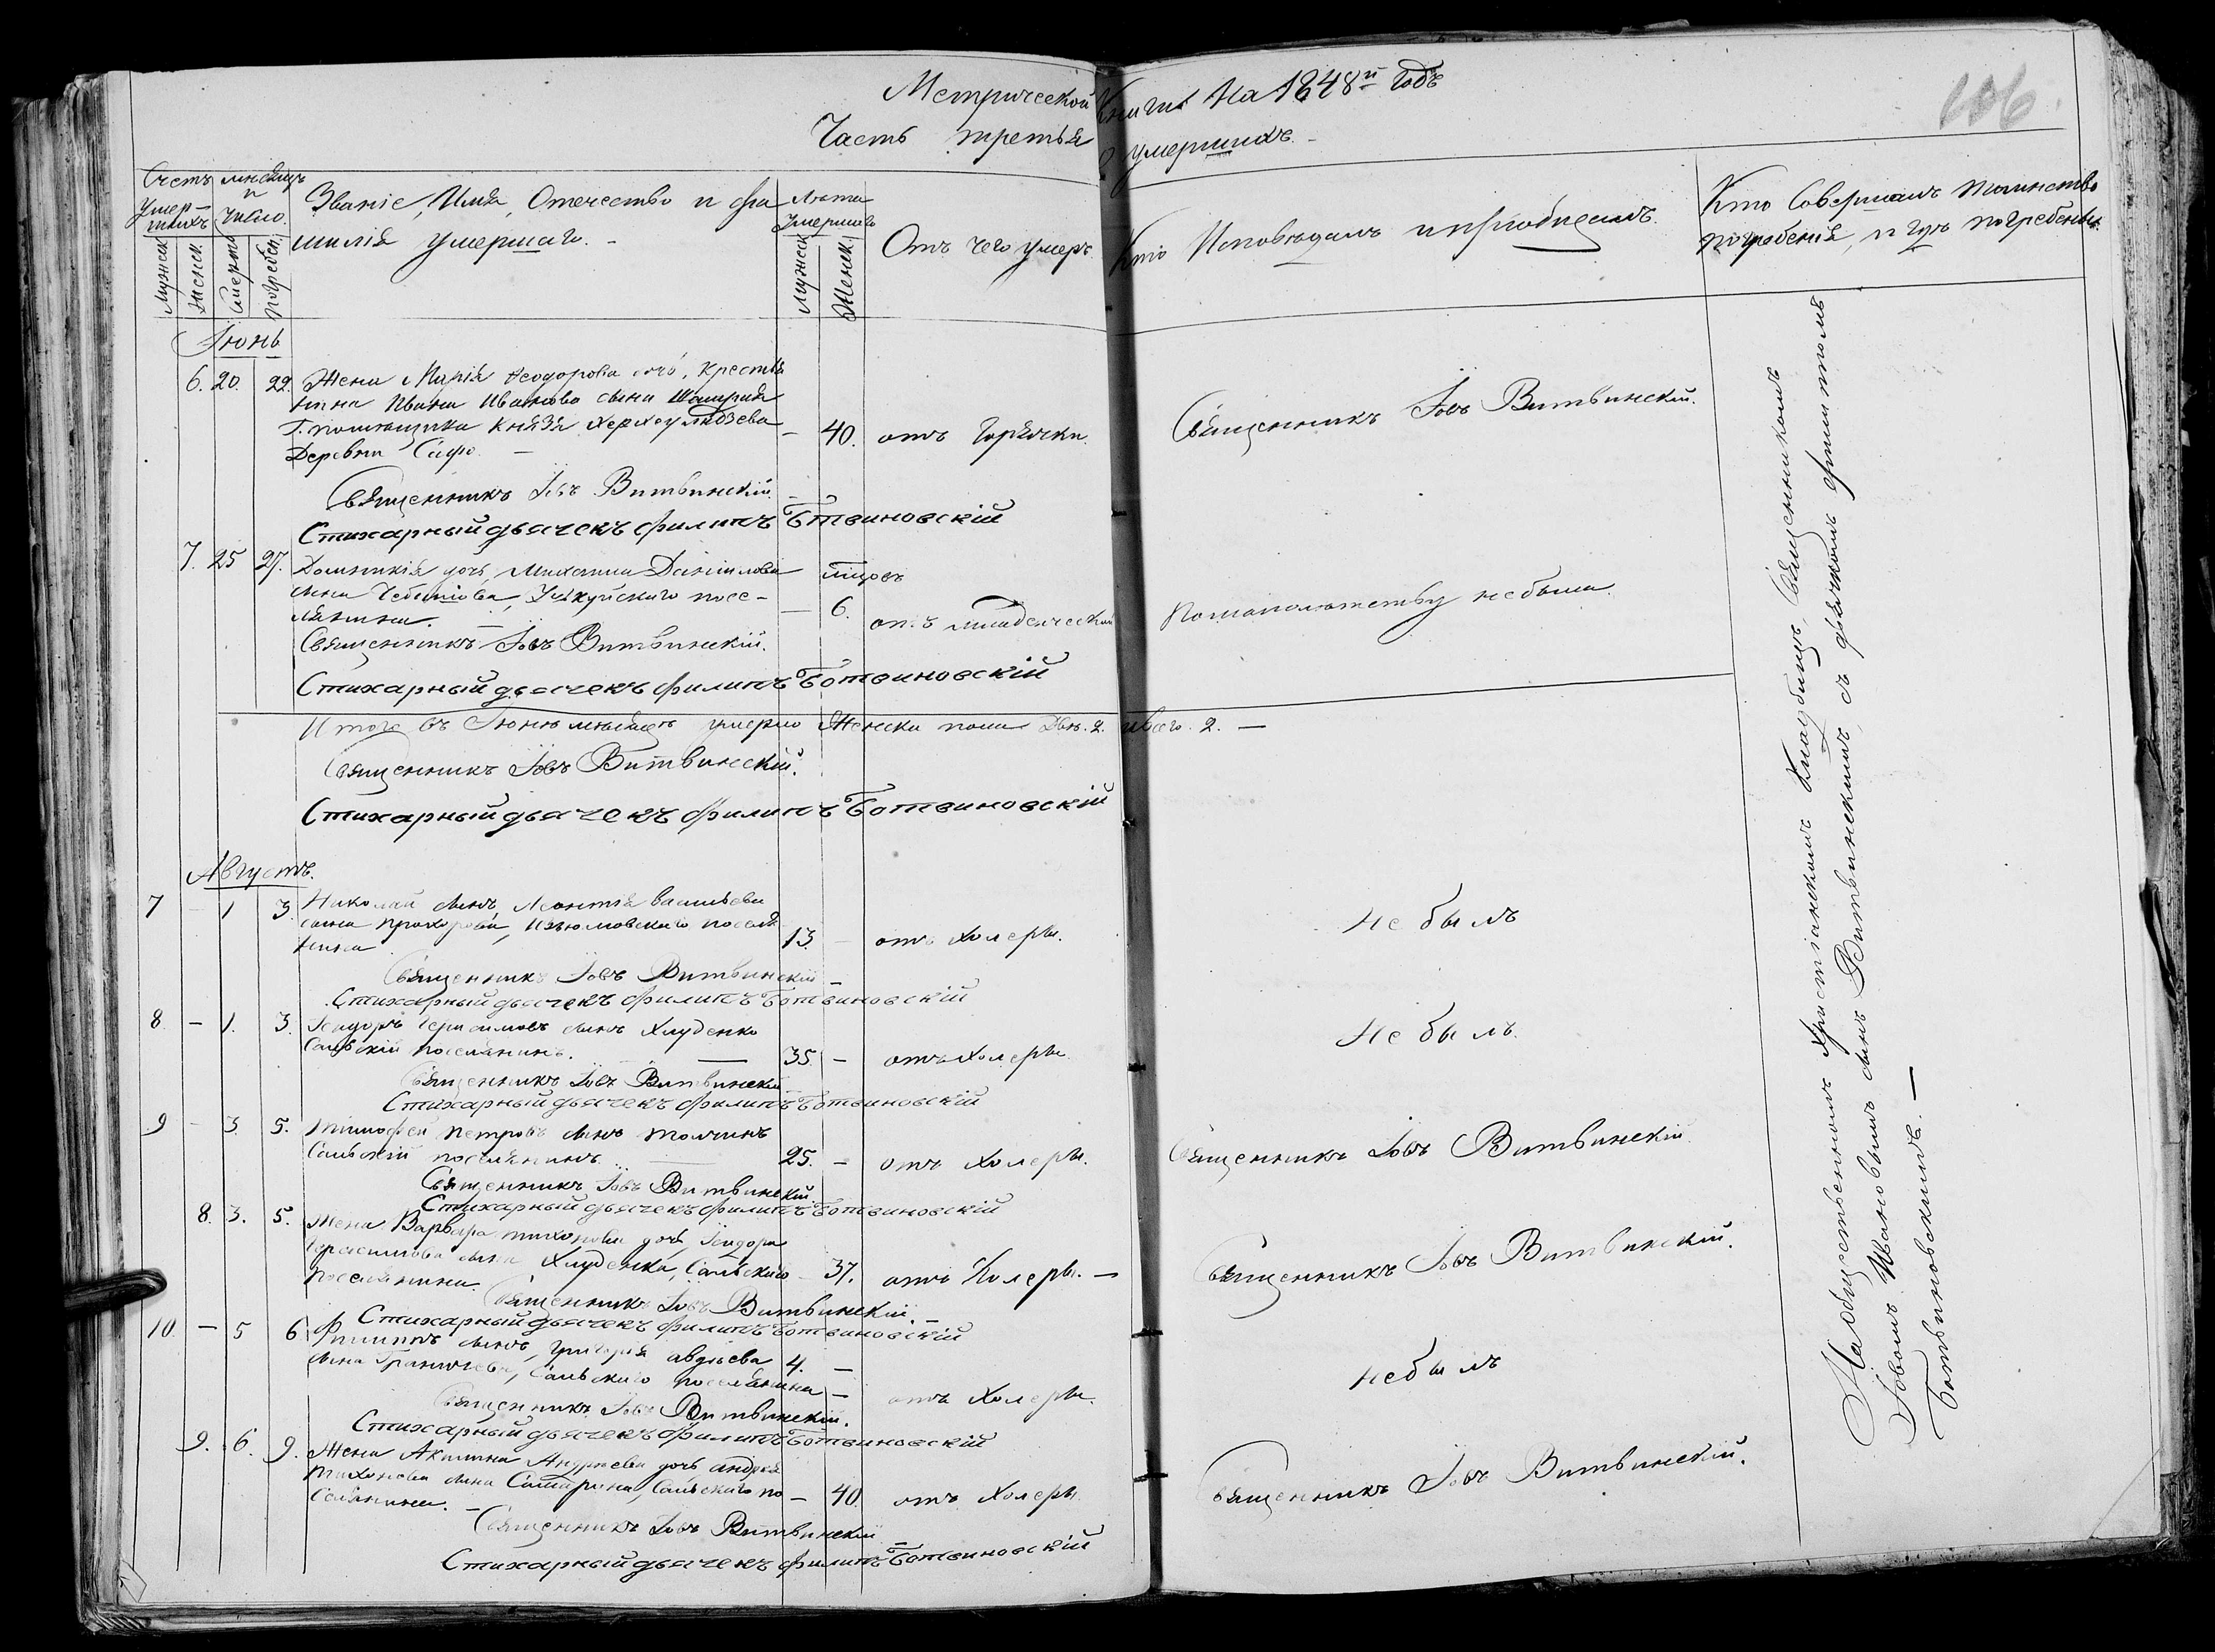 Метрической Книги На 1848й годъ
Часть третья о умершихъ.
106.
Счетъ умершихъ
месяцъ и число.
Званіе, Имя, Отечество и фамилія умершаго.
Лѣта умершаго
Отъ чего умеръ.
Кто Исповѣдалъ и пріобщалъ.
Кто Совершалъ таинство
погребенія, и гдѣ погребены.
Мужск.
Женск.
Смерти
Погребен.
Мужск.
Женск.
Іюнь
6. 20. 22. Жена Марія Ѳеодорова дочь, крестья
нина Ивана Иванова сына
Г. помещика Князя Херхеулидзева
Деревни — 40. отъ Горячки. Священникъ Іовъ Витвинскій.
Священникъ Іовъ Витвинскій.
Стихарный дьячекъ Филипъ Ботвиновскій
7. 25 27. Домникія дочь, Михаила Данилова
сына Учкуйского посе-
лянина — 6. мѣсяц. отъ младенческой По малолѣтству не была.
Священникъ Іовъ Витвинскій.
Стихарный дьячекъ Филипъ Ботвиновскій
Итого въ Іюнѣ мѣсяцѣ умерло Женска пола Двѣ. 2. и всего. 2. —
Священникъ Іовъ Витвинскій.
Стихарный дьячекъ Филипъ Ботвиновскій
Августъ.
7 – 1 3. Николай сынъ, Леонтія Васильева
сына Прохорова, Изюмовскаго поселя
нина 13. – отъ Холеры. Не былъ
Священникъ Іовъ Витвинскій
Стихарный дьячекъ Филипъ Ботвиновскій
8 – 1. 3. Герасимовъ сынъ Хлуденко
Сальскій поселянинъ. 35 – отъ Холеры Не былъ.
Священникъ Іовъ Витвинскій
Стихарный дьячекъ Филипъ Ботвиновскій
9 – 3 5. Тимофей Петровъ сынъ Толчинъ
Сальскій поселянинъ 25. – отъ Холеры. Священникъ Іовъ Витвинскій
Священникъ Іовъ Витвинскій
Стихарный дьячекъ Филипъ Ботвиновскій
8. 3. 5. Жена Варвара Тихонова дочь,
Герасимова сына Хлуденка, Сальскаго
поселянина. – 37. отъ Холеры. – Священникъ Іовъ Витвинскій.
Священникъ Іовъ Витвинскій.
Стихарный дьячекъ Филипъ Ботвиновскій
10 – 5 6 Филиппъ сынъ, Григорія Авдѣева
сына Сальскаго поселянина 4. – отъ Холеры. не былъ
Священникъ Іовъ Витвинскій.
Стихарный дьячекъ Филипъ Ботвиновскій
9. 6. 9. Жена Акилина Андреева дочь Андрея
Тихонова сына Самарина, Сальскаго по
селянина. – 40 отъ Холеры. Священникъ Іовъ Витвинскій.
Священникъ Іовъ Витвинскій
Стихарный дьячекъ Филипъ Ботвиновскій
На общественномъ христіанскомъ кладбищѣ, Священникомъ
Іовомъ Ивановымъ сынъ Витвинскимъ, съ дьячкомъ Филиппомъ
Ботвиновскимъ. —